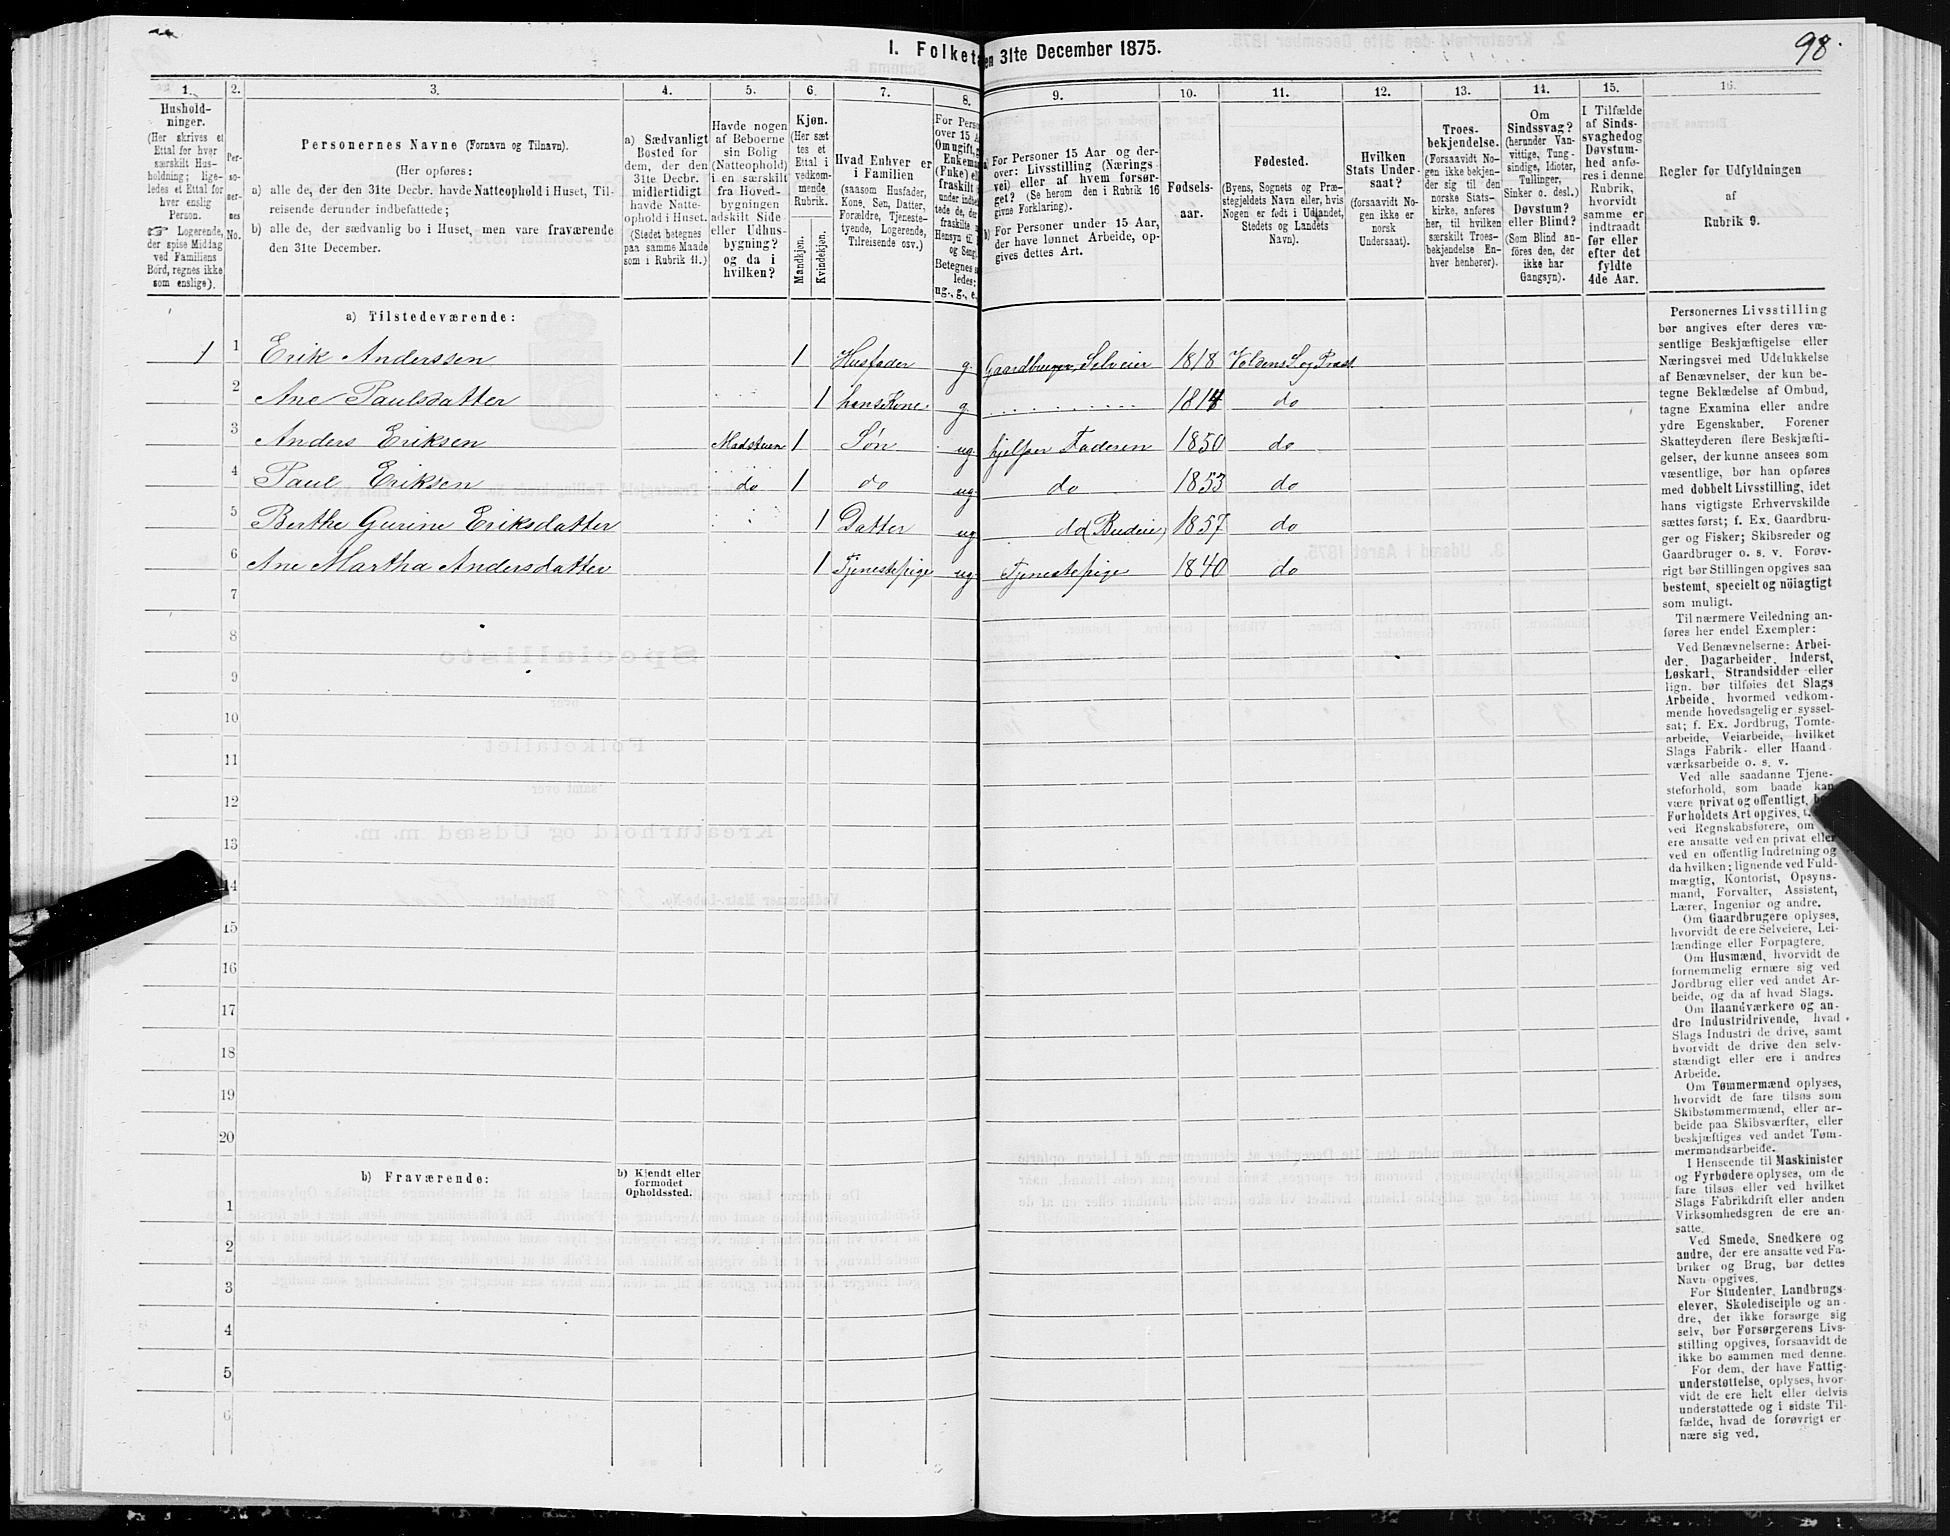 98.
I. Folketa
en 31te December 1875.
1.
2.
3.
4.
5.
6.
7.
8.
9.
10.
11.
12.
13.
14.
15.
16.
Hushold-
ninger.
(Her skrives et
Ettal for hver
særskilt Hus-
holdning; lige-
ledes et Ettal for
hver enslig
Person.
☞ Logerende,
der spise Middag
ved Familiens
Bord, regnes ikke
som enslige).
Per-
so-
ner-
nes
No.
Personernes Navne (Fornavn og Tilnavn).
(Her opføres:
a) alle de, der den 31te Decbr. havde Natteophold i Huset, Til-
reisende derunder indbefattede;
b) alle de, der sædvanlig bo i Huset, men vare fraværende
den 31te December.
a) Sædvanligt
Bosted for
dem, der den
31te Decbr.
midlertidigt
havde Natte-
ophold i Huset.
(Stedet betegnes
paa samme Maade
som i Rubrik 11.)
Havde nogen
af Beboerne
sin Bolig
(Natteophold)
i en særskilt
fra Hoved-
bygningen
adskilt Side-
eller Udhus-
bygning?
og da i
hvilken?
Kjøn.
(Her sæt-
tes et
Ettal i
vedkom-
mende
Rubrik.
Mandkjøn.
Kvindekjøn.
Hvad Enhver er
i Familien
(saasom Husfader,
Kone, Søn, Datter,
Forældre, Tjeneste-
tyende, Logerende,
Tilreisende osv.)
For Perso
over 15 A
Om ugift, g
Enkeman
(Enke) ell
fraskilt
under indbe
tede de, de
fraskilte
Hensyn til
og Seng
Betegnes s
ledes:
ug., g., e.
a) For Personer 15 Aar og der-
over: Livsstilling (Nærings-
vei) eller af hvem forsør-
get? (Se herom den i Rubrik 16
givne Forklaring).
b) For Personer under 15 Aar,
der have lønnet Arbeide, op-
gives dettes Art.
Fødsels-
aar.
Fødested.
(Byens, Sognets og Præ-
stegjeldets Navn eller, hvis
Nogen er født i Udlandet,
Stedets og Landets
Navn).
Hvilken
Stats Under-
saat?
(forsaavidt No-
gen ikke er
norsk
Undersaat).
Troes-
bekjendelse.
(Forsaavidt No-
gen ikke bekjen-
der sig til den
norske Stats-
kirke, anføres
her, til hvilken
særskilt Troes-
bekjendelse En-
hver henhører).
Om
Sindssvag?
(herunder Van-
vittige, Tung-
sindige, Idioter,
Tullinger,
Sinker o. desl.)
Døvstum?
eller Blind?
(Som Blind an-
føres den, der
ikke har
Gangsyn).
I Tilfælde
af Sinds-
svaghed og
Døvstum-
hed anfø-
res i denne
Rubrik,
hvorvidt
samme er
indtraadt
før eller
efter det
fyldte
4de Aar.
Regler for Udfyldningen
af
Rubrik 9.
a) Tilstedeværende:
1 1 Erik Anderssen 1 Husfader g. Gaardbruger, Selveier 1818 Voldens S. og Præst.
2 Ane Paulsdatter 1 hans Kone g. 1814 do
3 Anders Eriksen Madstuen 1 Søn ug. hjelper Faderen 1850 do
4 Paul Eriksen do 1 do ug. do 1853 do
5 Berthe Gurine Eriksdatter 1 Datter ug. do (Budeie) 1857 do
6 Ane Martha Andersdatter 1 Tjenestepige ug. Tjenestepige 1840 do
7
8
9
10
11
12
13
14
15
16
17
18
19
20
b) Fraværende:
b) Kjendt eller
formodet
Opholdssted.
1
2
3
4
5
6
Personernes Livsstilling
bør angives efter deres væ-
sentlige Beskjæftigelse eller
Næringsvei med Udelukkelse
af Benævnelser, der kun be-
tegne Beklædelse af Ombud,
tagne Examina eller andre
ydre Egenskaber. Forener
Skatteyderen flere Beskjæfti-
gelser, der kunne ansees som
væsentlige, bør han opføres
med dobbelt Livsstilling, idet
hans vigtigste Erhvervskilde
sættes først; f. Ex. Gaardbru-
ger og Fisker; Skibsreder og
Gaardbruger o. s. v. Forøv-
rigt bør Stillingen opgives saa
bestemt, specielt og nöiagtigt
som muligt.
Til nærmere Veiledning an-
føres her endel Exempler:
Ved Benævnelserne: Arbei-
der, Dagarbeider, Inderst,
Løskarl, Strandsidder eller
lign. bør tilføies det Slags
Arbeide, hvormed vedkom-
mende hovedsagelig er syssel-
sat; f. Ex. Jordbrug, Tomte-
arbeide, Veiarbeide, hvilket
Slags Fabrik- eller Haand-
værksarbeide o. s. v.
Ved alle saadanne Tjene-
steforhold, som baade kan
være privat og offentligt, b
Forholdets Art opgives, t.
ved Regnskabsførere, om
ere ansatte ved en privat eller
ved en offentlig Indretning og
da hvilken; lignende ved Fuld-
mægtig, Kontorist, Opsyns-
mand, Forvalter, Assistent,
Lærer, Ingeniør og andre.
Om Gaardbrugere oplyses,
hvorvidt de ere Selveiere, Lei-
lændinge eller Forpagtere.
Om Husmænd, hvorvidt de
fornemmelig ernære sig ved
Jordbrug eller ved andet Ar-
beide, og da af hvad Slags.
Om Haandværkere og an-
dre Industridrivende, hvad
Slags Industri de drive, samt
hvorvidt de drive den selv-
stændigt eller ere i andres
Arbeide.
Om Tømmermænd oplyses,
hvorvidt de fare tilsøs som
Skibstømmermænd, eller ar-
beide paa Skibsværfter, eller
beskjæftiges ved andet Tøm-
mermandsarbeide.
I Henseende til Maskinister
og Fyrbødere oplyses, om de
fare tilsøs eller ved hvilket
Slags Fabrikdrift eller anden
Virksomhedsgren de ere an-
satte.
Ved Smede, Snedkere og
andre, der ere ansatte ved Fa-
briker og Brug, bør dettes
Navn opgives.
For Studenter, Landbrugs-
elever, Skoledisciple og an-
dre, der ikke forsørge sig
selv, bør Forsørgerens Livs-
stilling opgives, forsaavidt de
ikke bo sammen med denne.
For dem, der have Fattig-
understøttelse, oplyses, hvor-
vidt de ere helt eller delvis
understøttede og i sidste Til-
fælde, hvad de forøvrigt er-
nære sig ved.